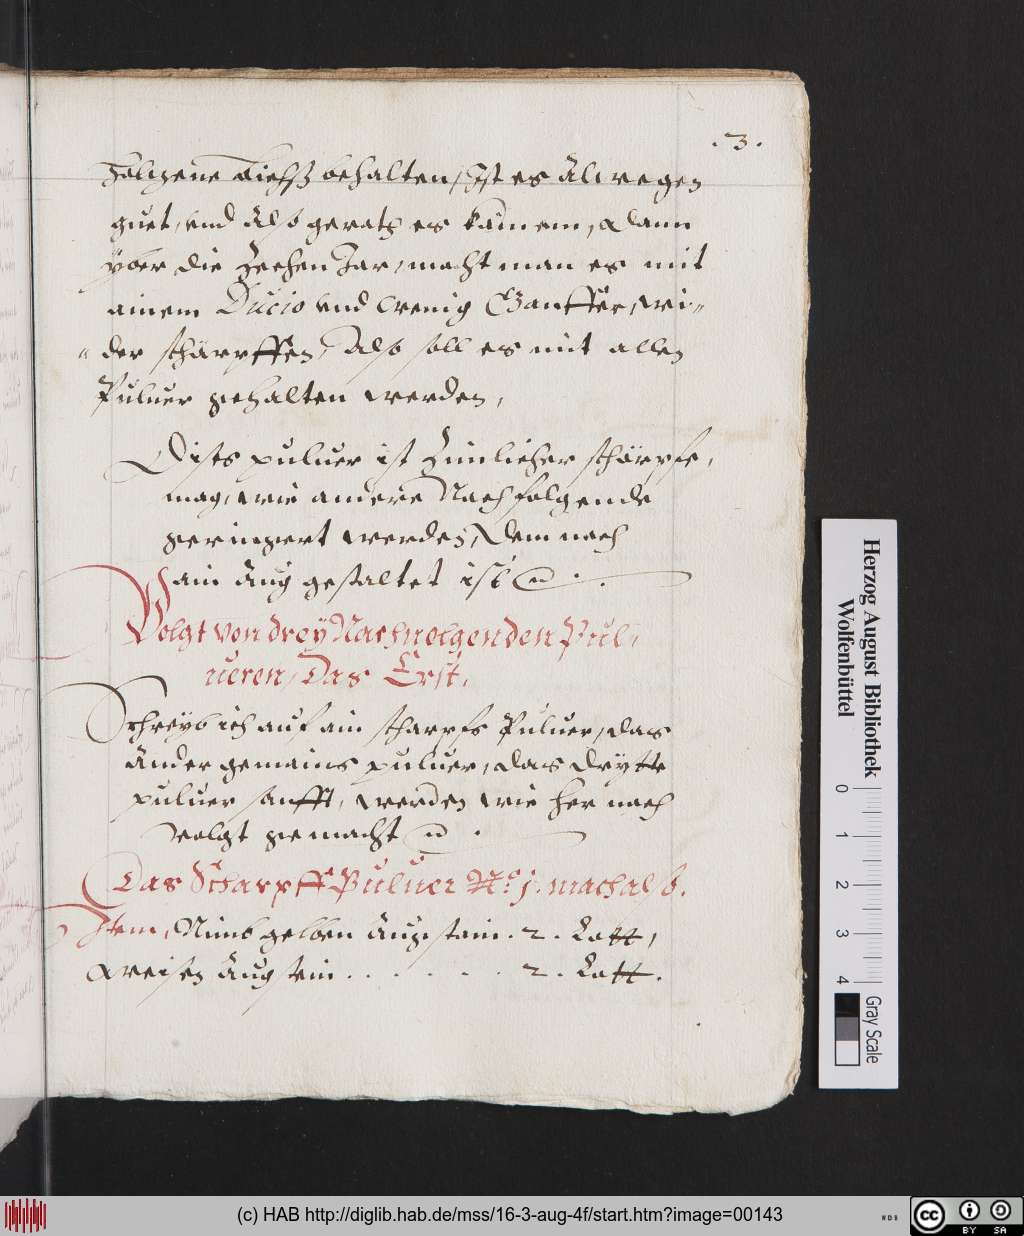 .3.
behalten, Ist es Alwegen
guet, vnd Also geratt es kainem, dann
yber die Zechen Jar, macht man es mit
ainem Ducio vnd wenig Ganffer, wi„
„ der schärpffen, Also soll es mit allen
Puluer gehalten werden,
Dises puluer ist Zimlicher schärpfe,
mag, wie andere Nachfolgende
geringert werden, Dem nach
ain Aug gestaltet ist
Volgt von dreÿ Nachuolgenden Pul„
ueren, Das Erst,
Schreyb ich auf ain scharpfs Puluer, das
Ander gemains puluer, das drytte
puluer sanfft, werden wie her nach
volgt gemacht
Das Scharpff Puluer No. j. mach also.
Item, Nimb gelben Augstain . 2 . Lott,
Weisen Augstein . . . . . . . 2 . Lott.
Herzog August Bibliothek
Wolfenbüttel
0 1 2 3 4
Gray Scale
(c) HAB http://diglib.hab.de/mss/16-3-aug-4f/start.htm?image=00143
WDB
cc
BY SA